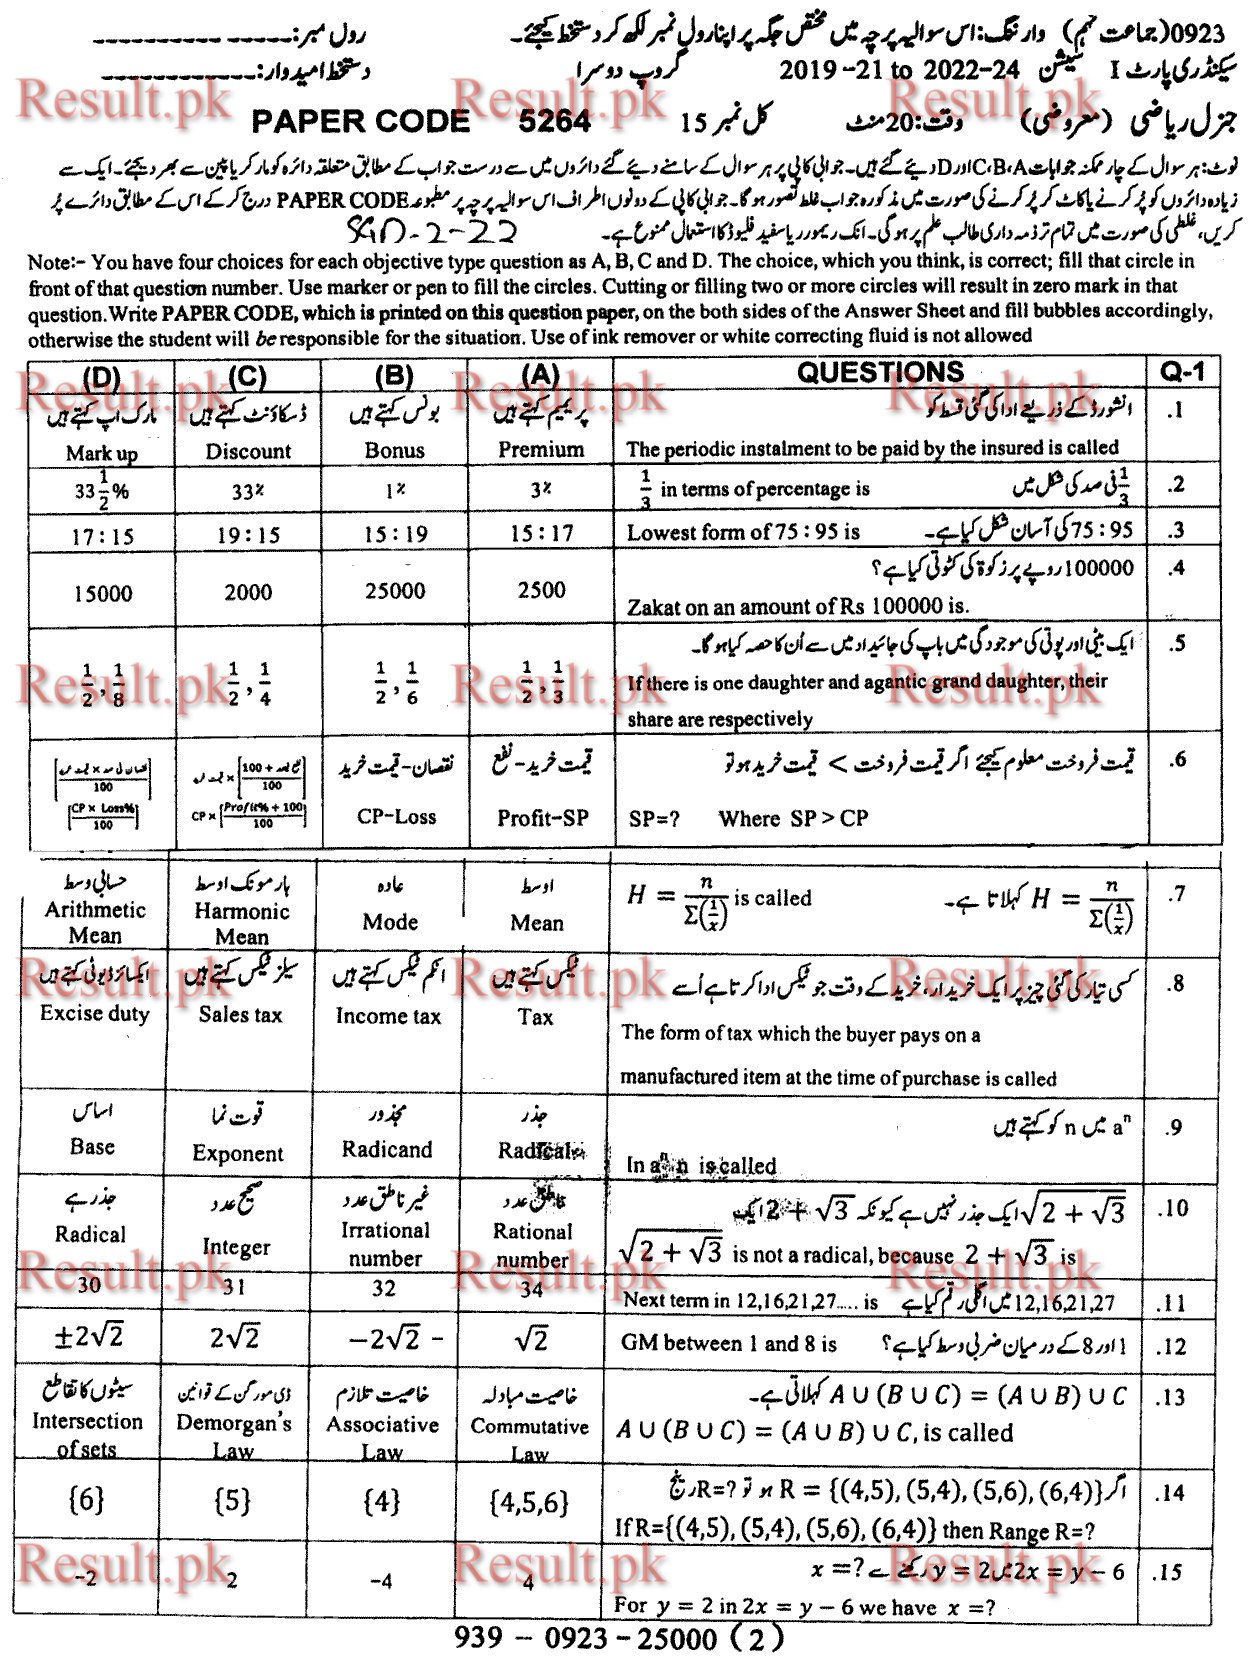 0923(جماعت نہم) وارننگ: اس سوالیہ پرچہ میں مختص جگہ پر اپنا رول نمبر لکھ کر دستخط کیجئے۔ رول نمبر: ـــــــــــــــــ
سیکنڈری پارٹ I سیشن 2022-24 to 2019-21 گروپ دوسرا دستخط امیدوار: ـــــــــــــــــ
جنرل ریاضی (معروضی) وقت: 20 منٹ کل نمبر 15 PAPER CODE 5264
نوٹ: ہر سوال کے چار ممکنہ جوابات C، B، A اور D دیئے گئے ہیں۔ جوابی کاپی پر ہر سوال کے سامنے دیئے گئے دائروں میں سے درست جواب کے مطابق متعلقہ دائرہ کو مارکر یا پین سے بھر دیجئے۔ ایک سے
زیادہ دائروں کو پُر کرنے یا کاٹ کر پُر کرنے کی صورت میں مذکورہ جواب غلط تصور ہوگا۔ جوابی کاپی کے دونوں اطراف اس سوالیہ پرچہ پر مطبوعہ PAPER CODE درج کر کے اس کے مطابق دائرے پُر
کریں، غلطی کی صورت میں تمام تر ذمہ داری طالب علم پر ہوگی۔ انک ریموور یا سفید فلیوڈ کا استعمال ممنوع ہے۔ SGD-2-22
Note:- You have four choices for each objective type question as A, B, C and D. The choice, which you think, is correct; fill that circle in
front of that question number. Use marker or pen to fill the circles. Cutting or filling two or more circles will result in zero mark in that
question.Write PAPER CODE, which is printed on this question paper, on the both sides of the Answer Sheet and fill bubbles accordingly,
otherwise the student will be responsible for the situation. Use of ink remover or white correcting fluid is not allowed
(D) (C) (B) (A) QUESTIONS Q-1
مارک اپ کہتے ہیں ڈسکاؤنٹ کہتے ہیں بونس کہتے ہیں پریمیم کہتے ہیں انشورڈ کے ذریعے ادا کی گئی قسط کو .1
Mark up Discount Bonus Premium The periodic instalment to be paid by the insured is called
33 1/2% 33% 1% 3% 1/3 in terms of percentage is 1/3 فی صد کی شکل میں .2
17:15 19:15 15:19 15:17 Lowest form of 75:95 is 75:95 کی آسان شکل کیا ہے۔ .3
100000 روپے پر زکوٰۃ کی کٹوتی کیا ہے؟ .4
15000 2000 25000 2500 Zakat on an amount of Rs 100000 is.
ایک بیٹی اور پوتی کی موجودگی میں باپ کی جائیداد میں سے اُن کا حصہ کیا ہوگا۔ .5
1/2, 1/8 1/2, 1/4 1/2, 1/6 1/2, 1/3 If there is one daughter and agantic grand daughter, their
share are respectively
[قیمت خرید × نقصان فی صد / 100] قیمت خرید × [نفع فیصد + 100 / 100] نقصان - قیمت خرید قیمت خرید - نفع قیمت فروخت معلوم کیجئے اگر قیمت فروخت > قیمت خرید ہو تو .6
[CP × Loss% / 100] CP × [Profit% + 100 / 100] CP-Loss Profit-SP SP=? Where SP > CP
حسابی وسط ہارمونک اوسط عادہ اوسط H = n/Σ(1/x) is called H = n/Σ(1/x) کہلاتا ہے۔ .7
Arithmetic Mean Harmonic Mean Mode Mean
ایکسائز ڈیوٹی کہتے ہیں سیلز ٹیکس کہتے ہیں انکم ٹیکس کہتے ہیں ٹیکس کہتے ہیں کسی تیار کی گئی چیز پر ایک خریدار، خرید کے وقت جو ٹیکس ادا کرتا ہے اُسے .8
Excise duty Sales tax Income tax Tax The form of tax which the buyer pays on a
manufactured item at the time of purchase is called
اساس قوت نما مجذور جذر aⁿ میں n کو کہتے ہیں .9
Base Exponent Radicand Radical In aⁿ n is called
جذر ہے صحیح عدد غیر ناطق عدد ناطق عدد √(2 + √3) ایک جذر نہیں ہے کیونکہ 2 + √3 ایک .10
Radical Integer Irrational number Rational number √(2 + √3) is not a radical, because 2 + √3 is
30 31 32 34 Next term in 12,16,21,27..... is 12,16,21,27 میں اگلی رقم کیا ہے .11
±2√2 2√2 −2√2 - √2 GM between 1 and 8 is 1 اور 8 کے درمیان ضربی وسط کیا ہے؟ .12
سیٹوں کا تقاطع ڈی مورگن کے قوانین خاصیت تلازم خاصیت مبادلہ A ∪ (B ∪ C) = (A ∪ B) ∪ C کہلاتی ہے۔ .13
Intersection of sets Demorgan's Law Associative Law Commutative Law A ∪ (B ∪ C) = (A ∪ B) ∪ C, is called
اگر R = {(4,5), (5,4), (5,6), (6,4)} ہو تو R=? رینج .14
{6} {5} {4} {4,5,6} If R={(4,5), (5,4), (5,6), (6,4)} then Range R=?
2x = y − 6 میں y = 2 رکھنے سے x =? .15
-2 2 -4 4 For y = 2 in 2x = y − 6 we have x =?
939 – 0923 – 25000 (2)
Result.pk